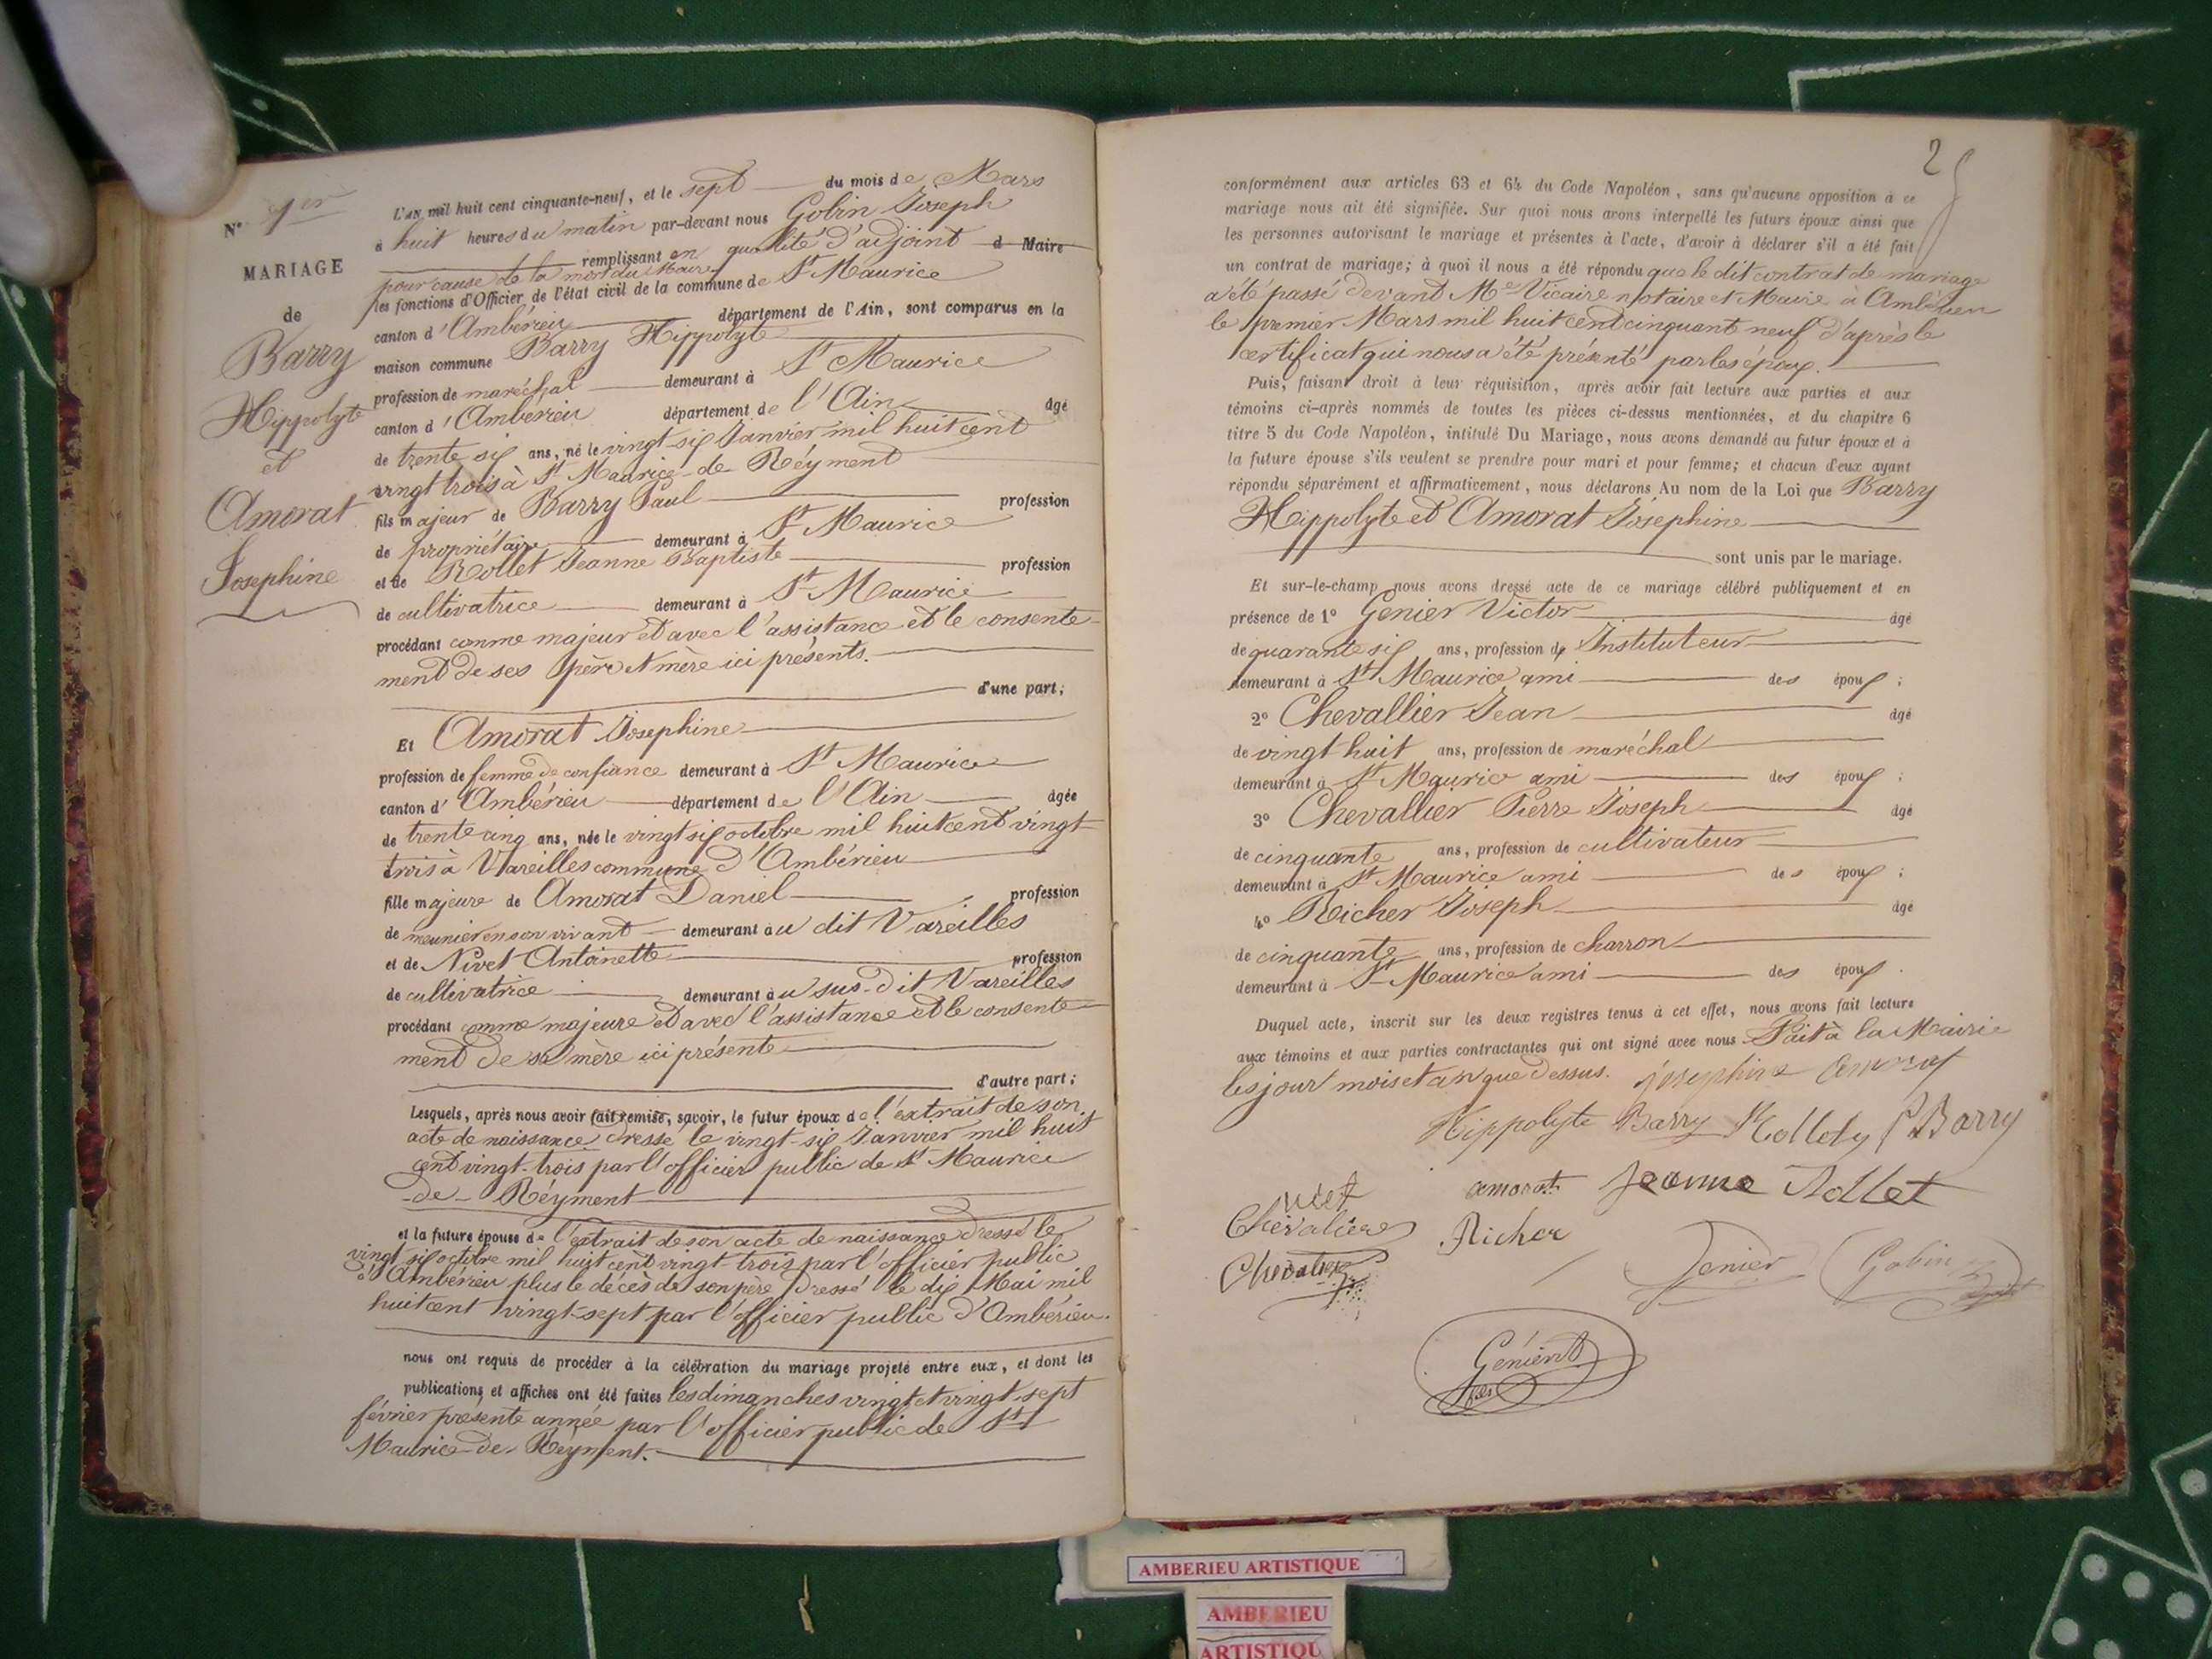 N° 1er
MARIAGE
de
Barry
Hippolyte
et
Amorat
Josephine
L'AN mil huit cent cinquante-neuf, et le sept du mois de Mars
à huit heures du matin par-devant nous Gobin Joseph
remplissant en qualité d'adjoint d Maire
pour cause de la mort du Maire
les fonctions d'Officier de l'état civil de la commune de St Maurice
canton d'Ambérieu département de l'Ain, sont comparus en la
maison commune Barry Hippolyte
profession de maréchal demeurant à St Maurice
canton d'Ambérieu département de l'Ain âgé
de trente six ans, né le vingt-six Janvier mil huit cent
vingt trois à St Maurice-de-Réyment
fils majeur de Barry Paul profession
de propriétaire demeurant à St Maurice
et de Rollet Jeanne Baptiste profession
de cultivatrice demeurant à St Maurice
procédant comme majeur et avec l'assistance et le consente-
ment de ses père et mère ici présents.
d'une part;
Et Amorat Josephine
profession de femme de confiance demeurant à St Maurice
canton d'Ambérieu département de l'Ain âgée
de trente cinq ans, née le vingt six octobre mil huit cent vingt-
trois à Vareilles commune d'Ambérieu
fille majeure de Amorat Daniel profession
de meunier en son vivant demeurant au dit Vareilles
et de Nivet Antoinette profession
de cultivatrice demeurant au sus-dit Vareilles
procédant comme majeure et avec l'assistance et le consente-
ment de sa mère ici présente
d'autre part;
Lesquels, après nous avoir fait remise, savoir, le futur époux de l'extrait de son
acte de naissance dressé le vingt-six Janvier mil huit
cent vingt-trois par l'officier public de St Maurice
-de-Réyment
et la future épouse de l'extrait de son acte de naissance dressé le
vingt-six octobre mil huit cent vingt-trois par l'officier public
d'Ambérieu plus le décès de son père dressé le dix Mai mil
huit cent vingt-sept par l'officier public d'Ambérieu.
nous ont requis de procéder à la célébration du mariage projeté entre eux, et dont les
publications et affiches ont été faites les dimanches vingt et vingt-sept
février présente année par l'officier public de St
Maurice-de-Réyment.
2
conformément aux articles 63 et 64 du Code Napoléon, sans qu'aucune opposition à ce
mariage nous ait été signifiée. Sur quoi nous avons interpellé les futurs époux ainsi que
les personnes autorisant le mariage et présentes à l'acte, d'avoir à déclarer s'il a été fait
un contrat de mariage; à quoi il nous a été répondu que le dit contrat de mariage
a été passé devant Me Vicaire notaire et Maire à Ambérieu
le premier Mars mil huit cent cinquant neuf d'après le
certificat qui nous a été présenté par les époux.
Puis, faisant droit à leur réquisition, après avoir fait lecture aux parties et aux
témoins ci-après nommés de toutes les pièces ci-dessus mentionnées, et du chapitre 6
titre 5 du Code Napoléon, intitulé Du Mariage, nous avons demandé au futur époux et à
la future épouse s'ils veulent se prendre pour mari et pour femme; et chacun d'eux ayant
répondu séparément et affirmativement, nous déclarons Au nom de la Loi que Barry
Hippolyte et Amorat Josephine
sont unis par le mariage.
Et sur-le-champ nous avons dressé acte de ce mariage célébré publiquement et en
présence de 1° Genier Victor âgé
de quarante six ans, profession de Instituteur
demeurant à St Maurice ami des époux;
2° Chevallier Jean âgé
de vingt huit ans, profession de maréchal
demeurant à St Maurice ami des époux;
3° Chevallier Pierre Joseph âgé
de cinquante ans, profession de cultivateur
demeurant à St Maurice ami des époux;
4° Richer Joseph âgé
de cinquante ans, profession de charron
demeurant à St Maurice ami des époux.
Duquel acte, inscrit sur les deux registres tenus à cet effet, nous avons fait lecture
aux témoins et aux parties contractantes qui ont signé avec nous. Fait à la Mairie
les jour mois et an que dessus. josephine Amorat
Hippolyte Barry P Barry
amorat Jeanne Rollet
Chevalier Richer
Chevalier Genier Gobin
Génier
fils
AMBERIEU ARTISTIQUE
AMBERIEU
ARTISTIQU